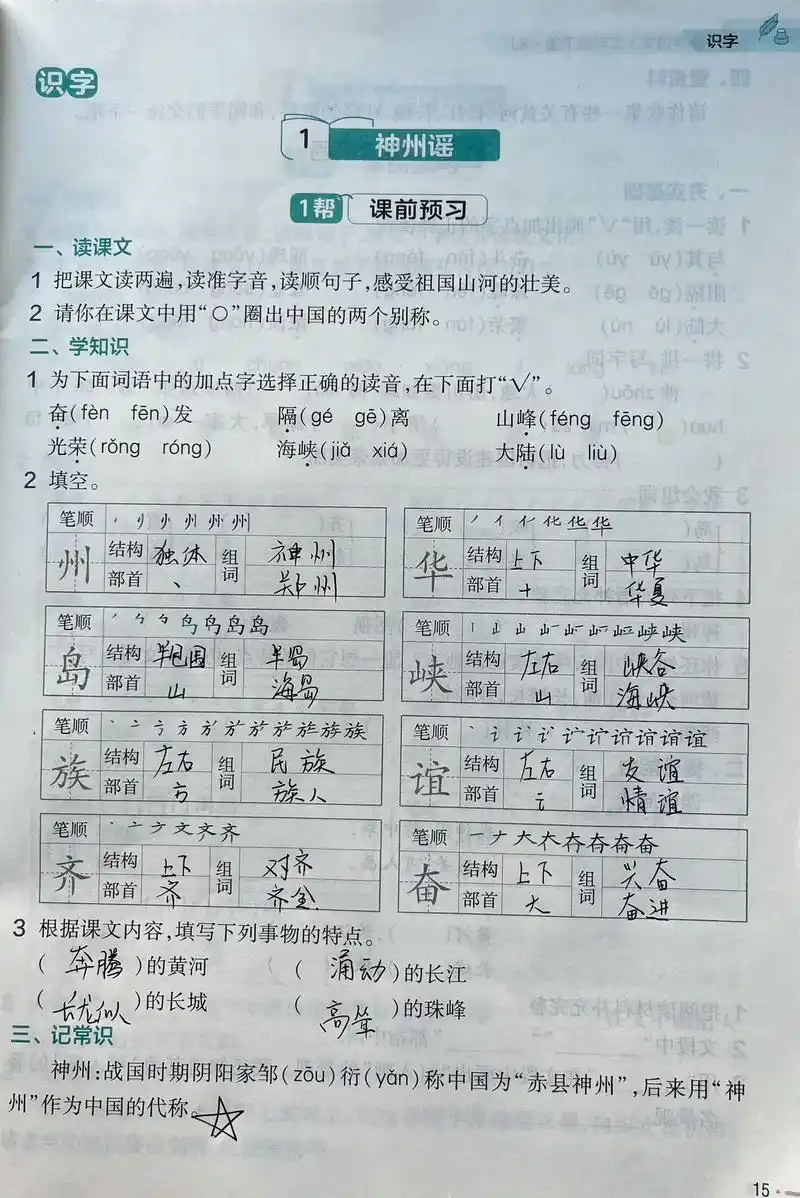 识字
识字
1 神州谣
1帮 课前预习
一、读课文
1 把课文读两遍,读准字音,读顺句子,感受祖国山河的壮美。
2 请你在课文中用“○”圈出中国的两个别称。
二、学知识
1 为下面词语中的加点字选择正确的读音,在下面打“√”。
奋(fèn fēn)发 隔(gé gē)离 山峰(féng fēng)
光荣(rǒng róng) 海峡(jiǎ xiá) 大陆(lù liù)
2 填空。
笔顺
州 结构 独体 组词 神州
部首 丶 郑州
笔顺
华 结构 上下 组词 中华
部首 十 华夏
笔顺
岛 结构 半包围 组词 半岛
部首 山 海岛
笔顺
峡 结构 左右 组词 峡谷
部首 山 海峡
笔顺
族 结构 左右 组词 民族
部首 方 族人
笔顺
谊 结构 左右 组词 友谊
部首 讠 情谊
笔顺
齐 结构 上下 组词 对齐
部首 齐 齐全
笔顺
奋 结构 上下 组词 兴奋
部首 大 奋进
3 根据课文内容,填写下列事物的特点。
( 奔腾 )的黄河 ( 涌动 )的长江
( )的长城 ( 高耸 )的珠峰
三、记常识
神州:战国时期阴阳家邹(zōu)衍(yǎn)称中国为“赤县神州”,后来用“神
州”作为中国的代称。
15